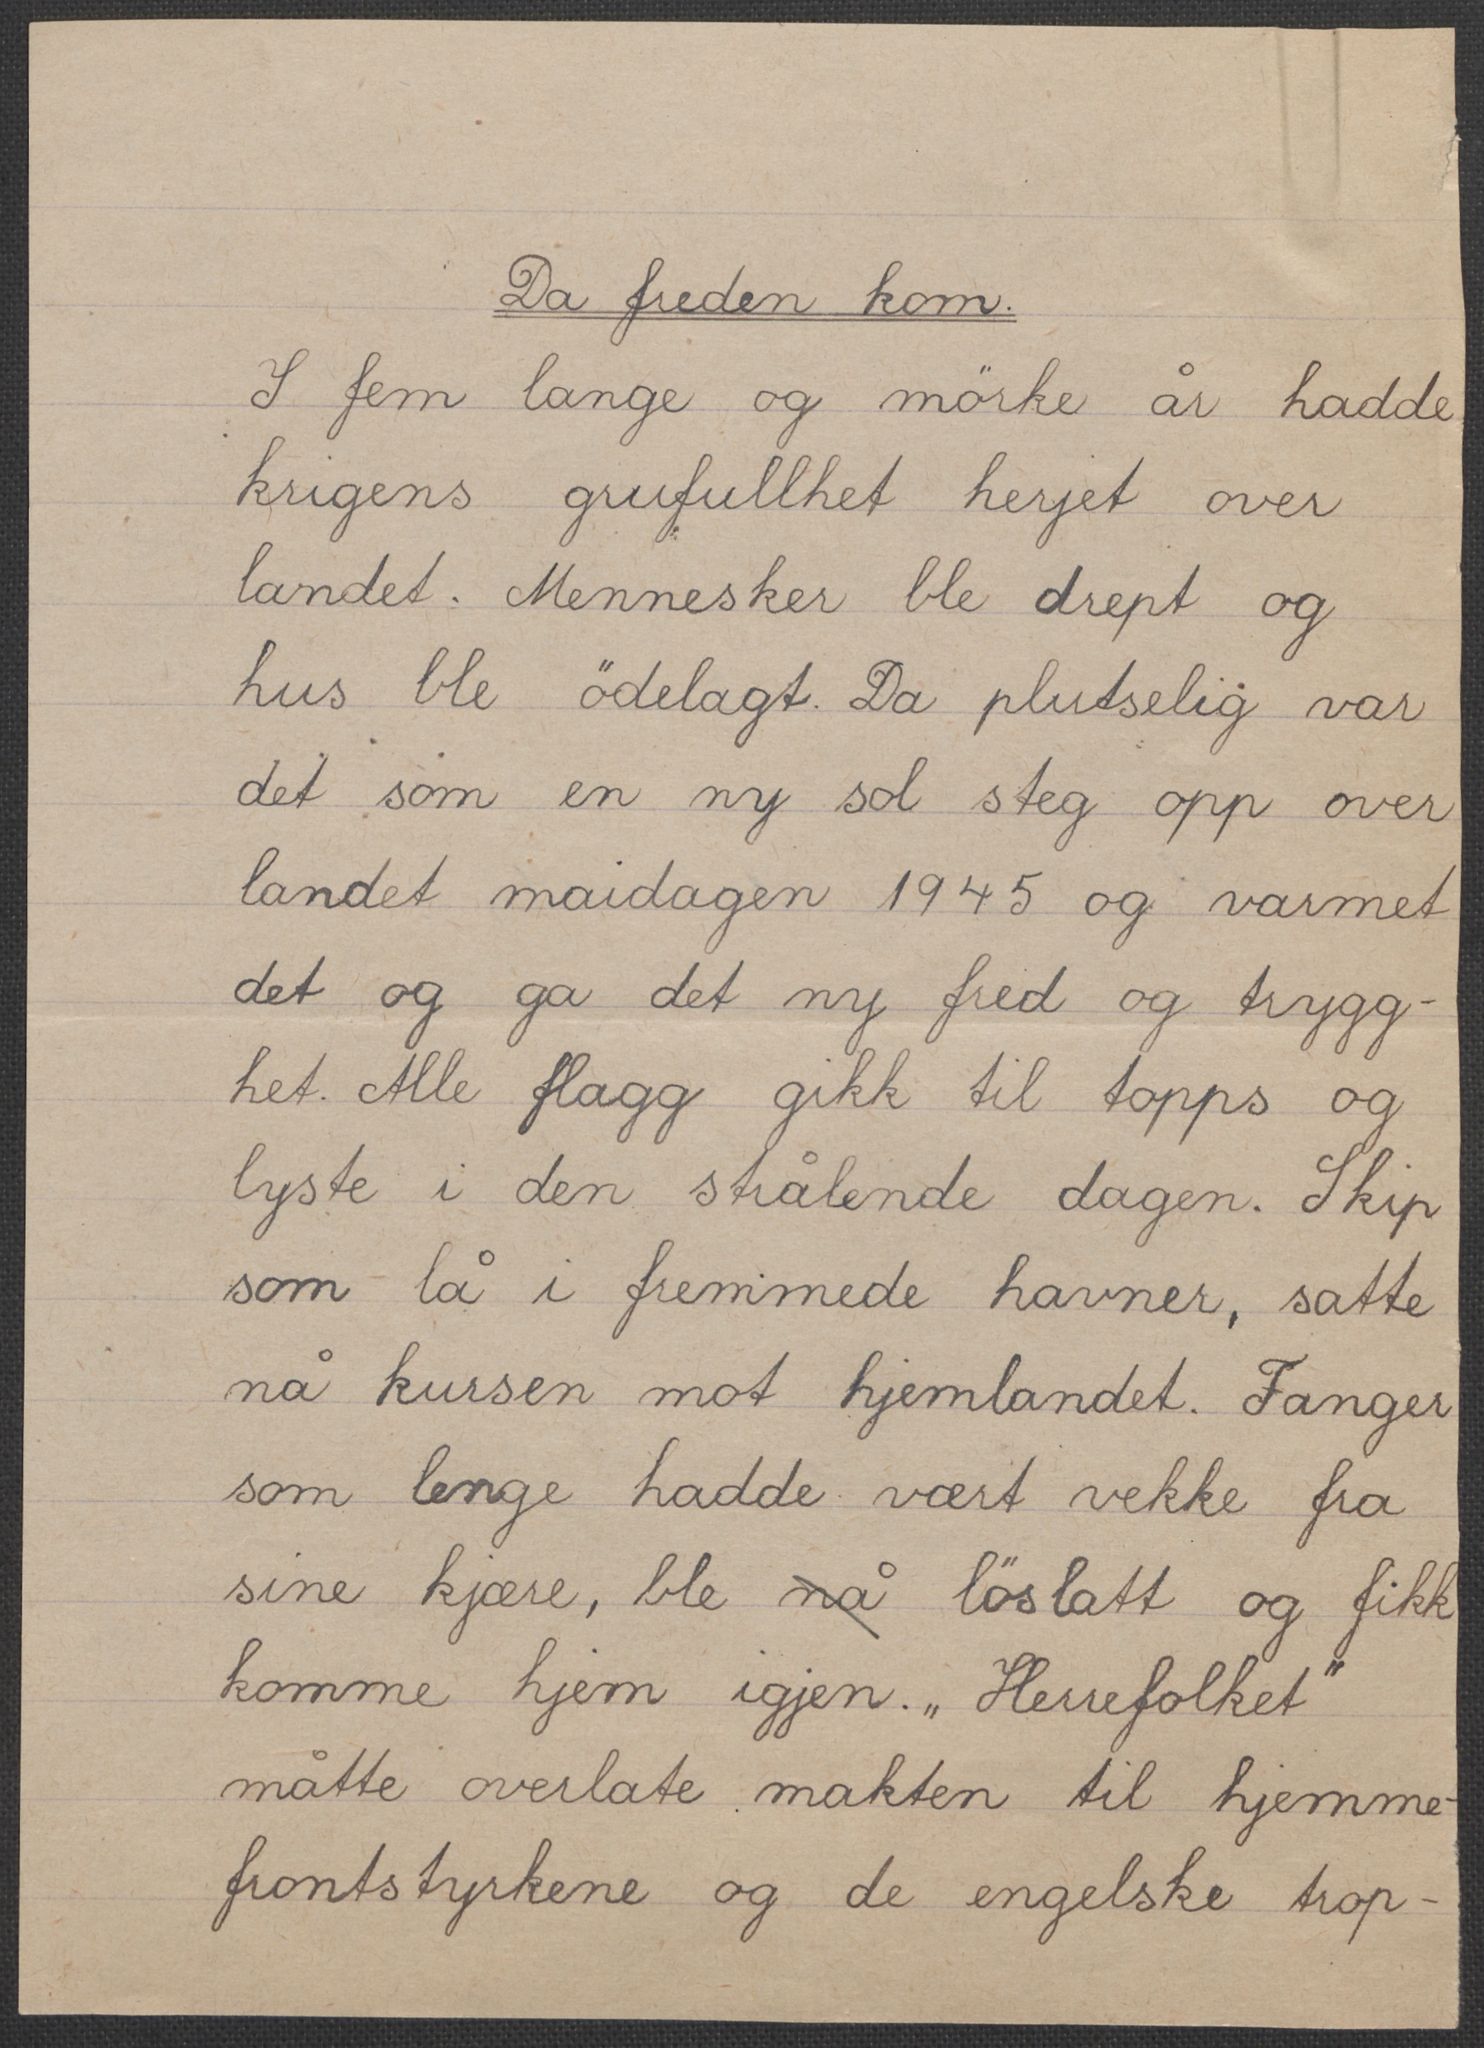 Da freden kom.
I fem lange og mörke år hadde
krigens grufullhet herjet over
landet. Mennesker ble drept og
hus ble ödelagt. Da plutselig var
det som en ny sol steg opp over
landet maidagen 1945 og varmet
det og ga det ny fred og trygg-
het. Alle flagg gikk til topps og
lyste i den strålende dagen. Skip
som lå i fremmede havner, satte
nå kursen mot hjemlandet. Fanger
som lenge hadde vært vekke fra
sine kjære, ble nå löslatt og fikk
komme hjem igjen. „Herrefolket"
måtte overlate makten til hjemme-
frontstyrkene og de engelske trop-